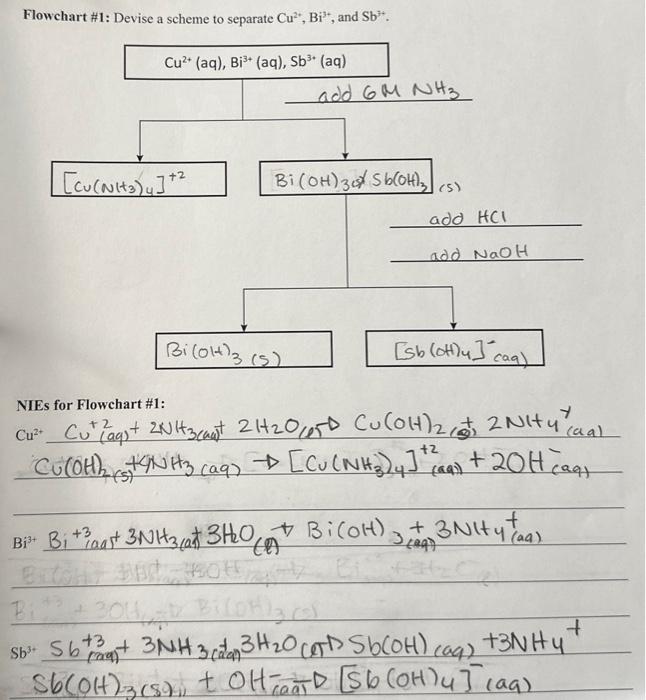 Flowchart #1: Devise a scheme to separate Cu²⁺, Bi³⁺, and Sb³⁺.
Cu²⁺ (aq), Bi³⁺ (aq), Sb³⁺ (aq)
add 6M NH₃
[Cu(NH₃)₄]⁺²
Bi(OH)₃ Sb(OH)₃ (s)
add HCl
add NaOH
Bi(OH)₃ (s)
[Sb(OH)₄]⁻(aq)
NIEs for Flowchart #1:
Cu²⁺ Cu⁺²(aq) + 2NH₃(aq) + 2H₂O(l) → Cu(OH)₂(s) + 2NH₄⁺(aq)
Cu(OH)₂(s) + 4NH₃(aq) → [Cu(NH₃)₄]⁺²(aq) + 2OH⁻(aq)
Bi³⁺ Bi⁺³(aq) + 3NH₃(aq) + 3H₂O(l) → Bi(OH)₃(aq) + 3NH₄⁺(aq)
Bi⁺³ + 3OH → Bi(OH)₃(s)
Sb³⁺ Sb⁺³(aq) + 3NH₃(aq) + 3H₂O(l) → Sb(OH)(aq) + 3NH₄⁺
Sb(OH)₃(s) + OH⁻(aq) → [Sb(OH)₄]⁻(aq)